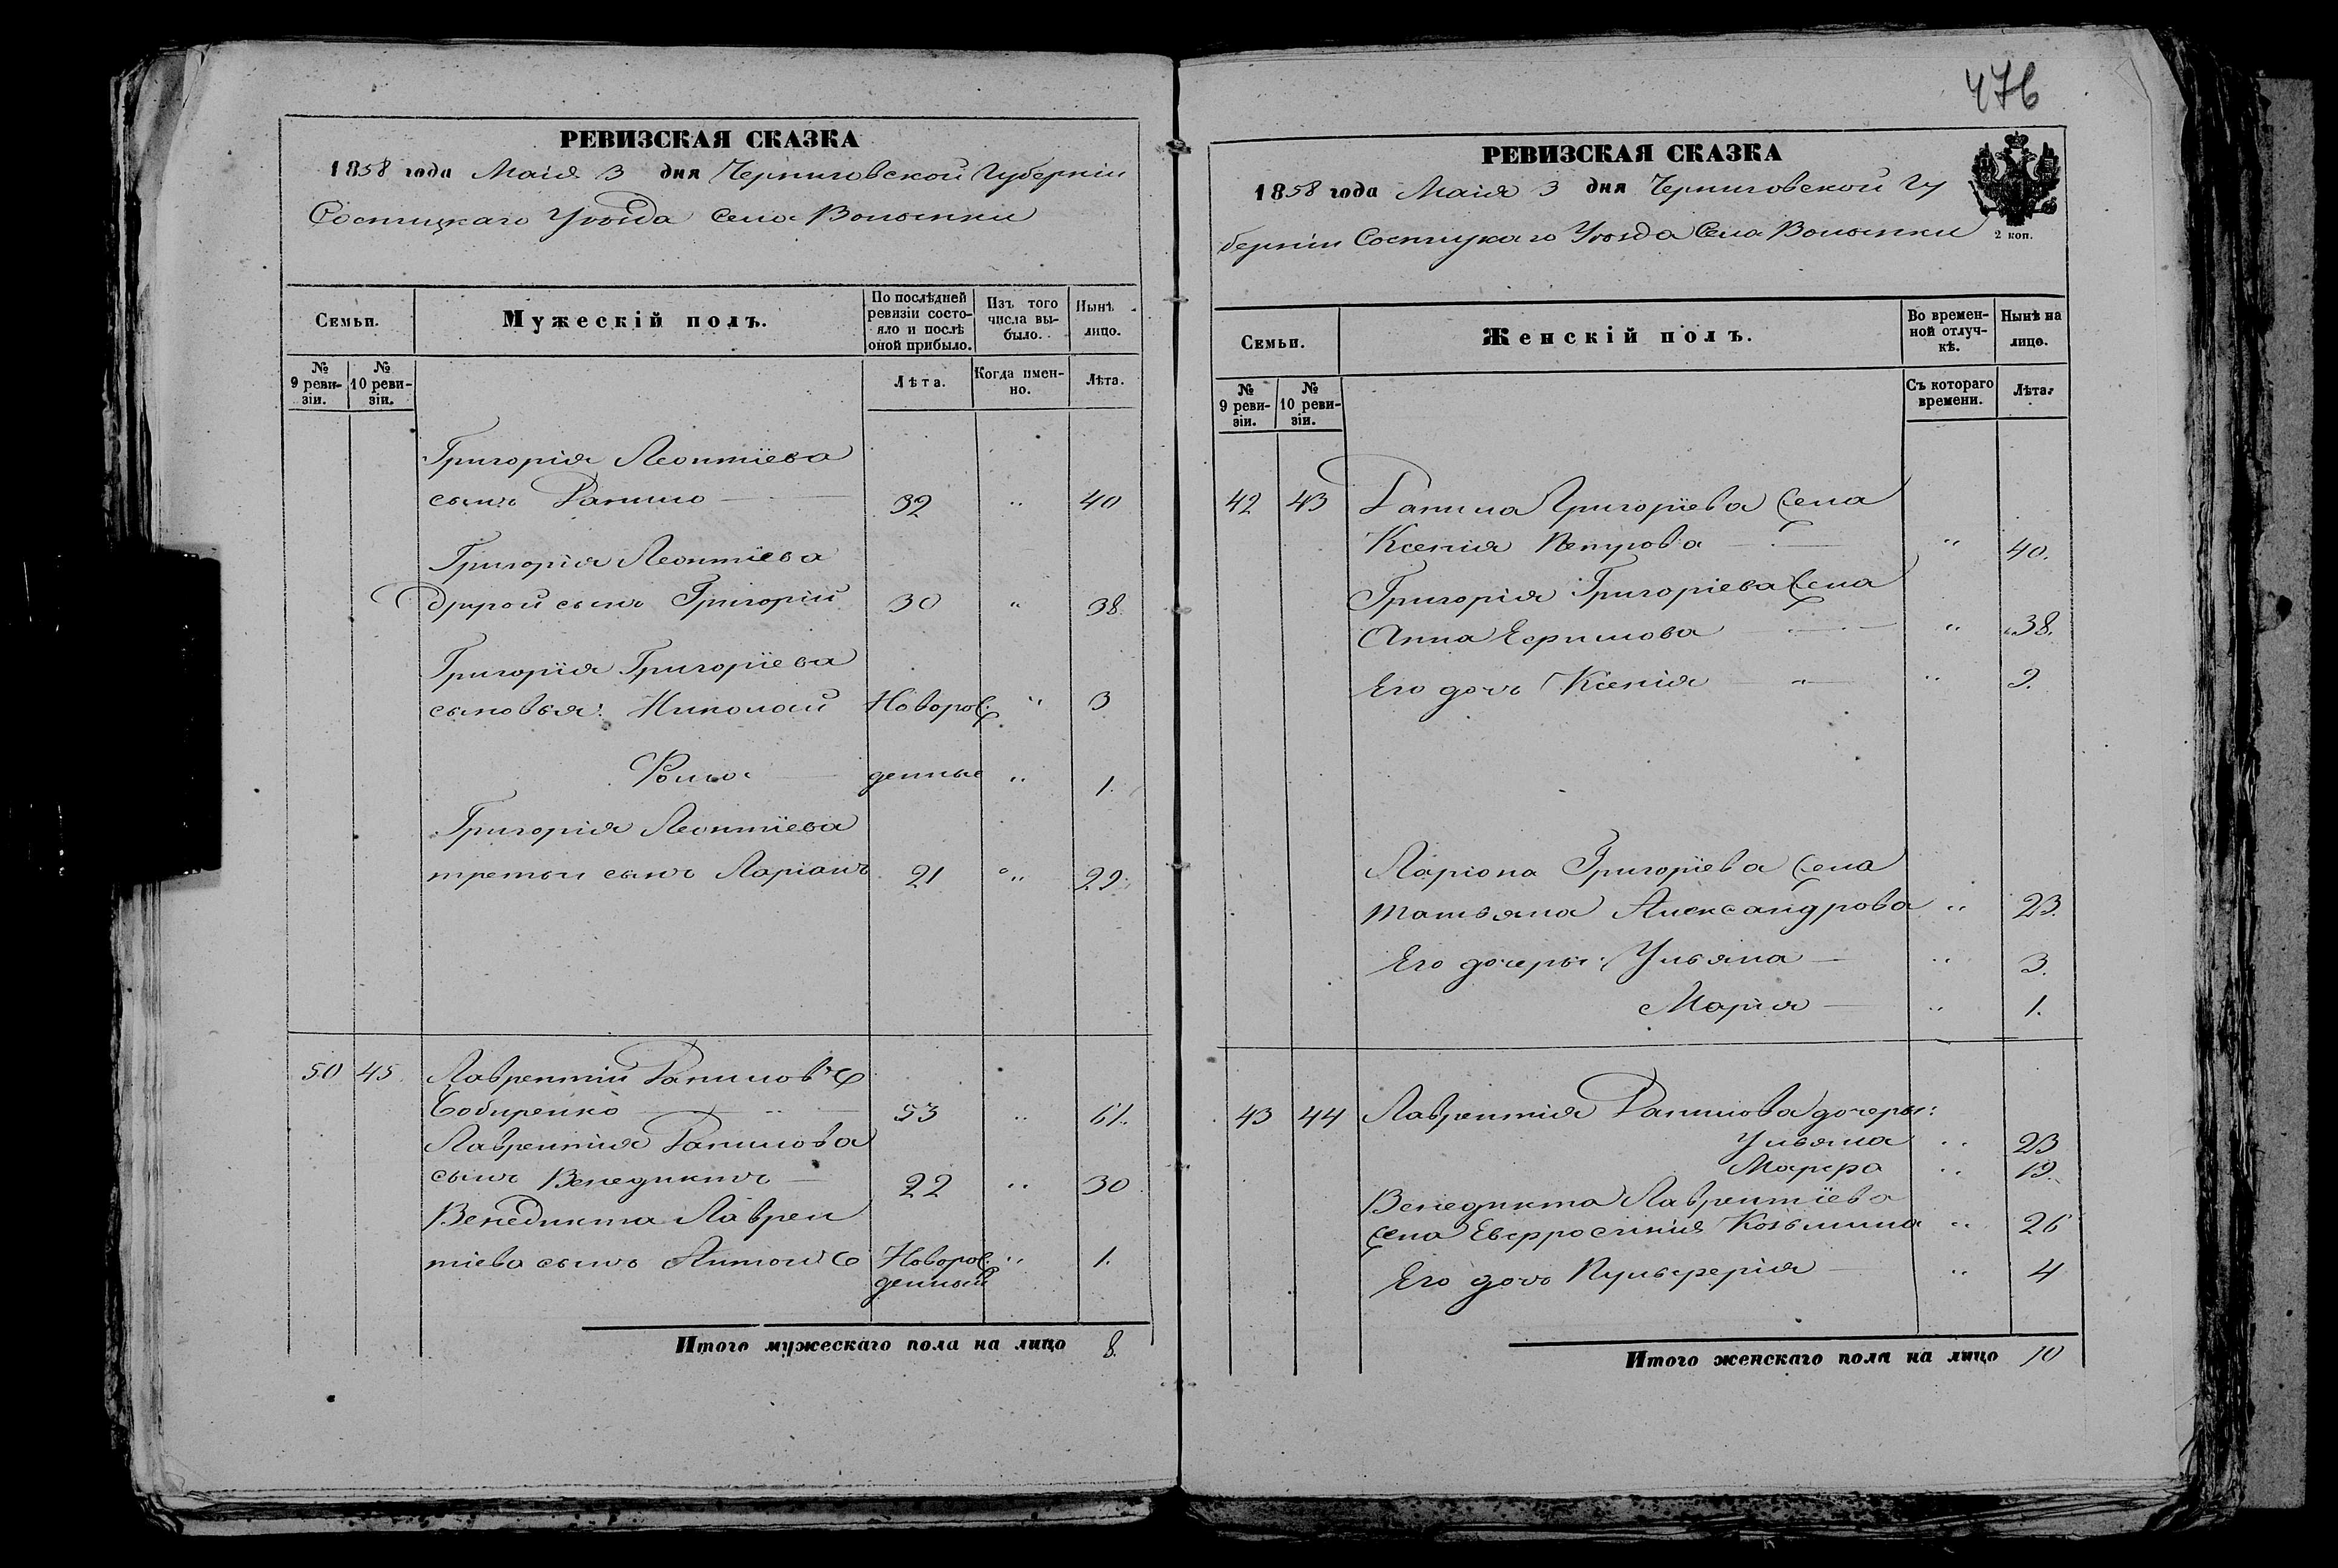 РЕВИЗСКАЯ СКАЗКА
1858 года Маія 3 дня Черниговской Губерніи
Сосницкаго Уѣзда Села Волынки
Семьи.
Мужескій полъ.
По послѣдней ревизіи состояло и послѣ оной прибыло.
Изъ того числа выбыло.
Нынѣ лицо.
№ 9 ревизіи.
№ 10 ревизіи.
Лѣта.
Когда именно.
Лѣта.
Григорія Леонтіева
сынъ Данило 32 " 40
Григорія Леонтіева
другой сынъ Григорій 30 " 38.
Григорія Григоріева
сыновья: Николай Новорож " 3
Фома денные " 1.
Григорія Леонтіева
третьи сынъ Ларіонъ 21 " 29.
50 45. Лаврентій Даниловъ
53 " 61.
Лаврентія Данилова
сынъ Венедиктъ 22 " 30
Венедикта Лаврен
тіева сынъ Антонъ Новорож " 1.
денный
Итого мужескаго пола на лицо 8.
476
РЕВИЗСКАЯ СКАЗКА
1858 года Маія 3 дня Черниговской Гу
берніи Сосницкаго Уѣзда Села Волынки
2 коп.
Семьи.
Женскій полъ.
Во временной отлучкѣ.
Нынѣ на лицо.
№ 9 ревизіи.
№ 10 ревизіи.
Съ котораго времени.
Лѣта.
42 43 Данила Григоріева жена
Ксенія Петрова " 40.
Григорія Григоріева жена
Анна Ефимова " 38.
Его дочь Ксенія " 9.
Ларіона Григоріева жена
Татьяна Александрова " 23.
Его дочери: Ульяна " 3.
Марія " 1.
43 44 Лаврентія Данилова дочери:
Ульяна " 23
Марфа " 19.
Венедикта Лаврентіева
жена Евфросинія Козьмина " 26
Его дочь Пульферія " 4
Итого женскаго пола на лицо 10